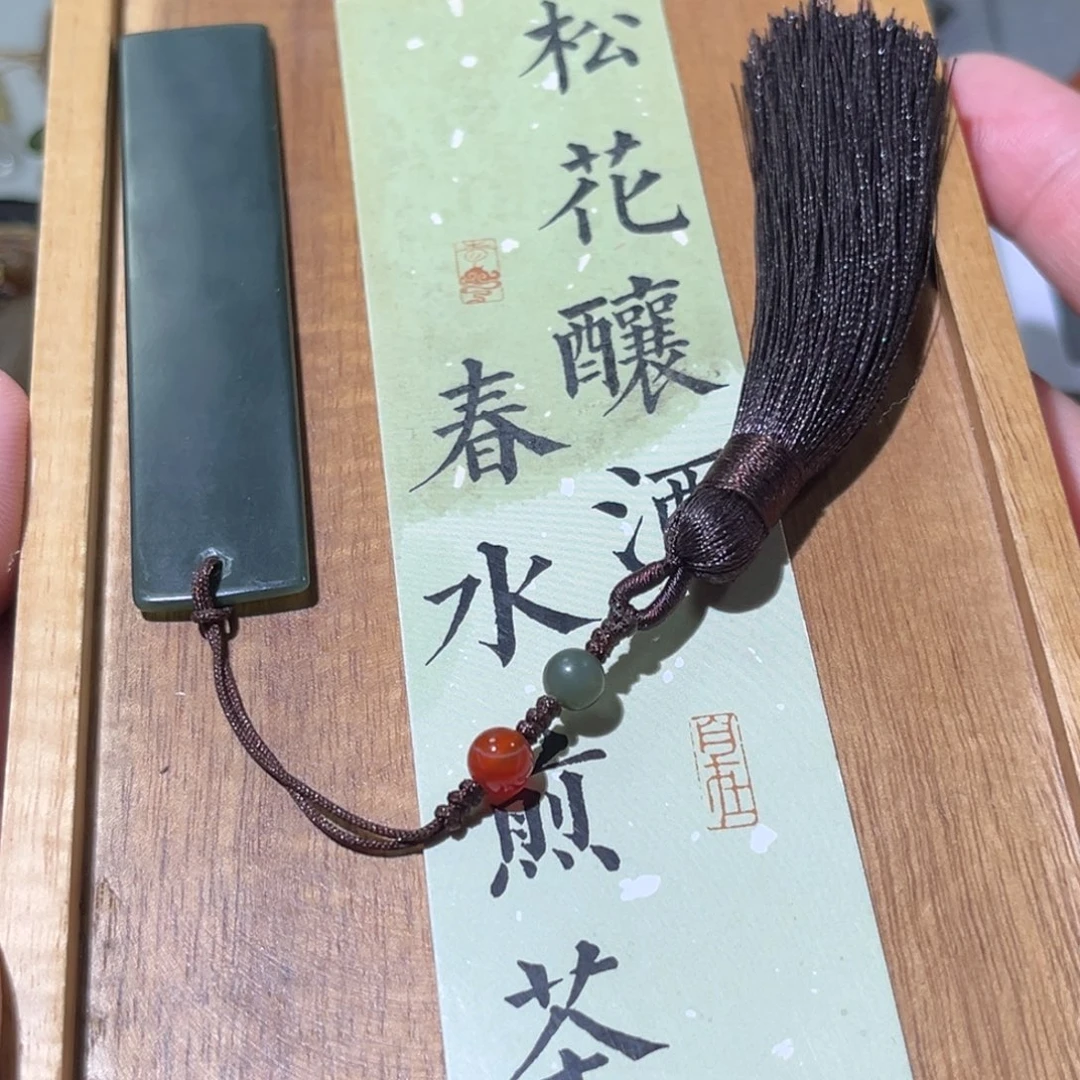 松花釀酒
春水煎茶
自在